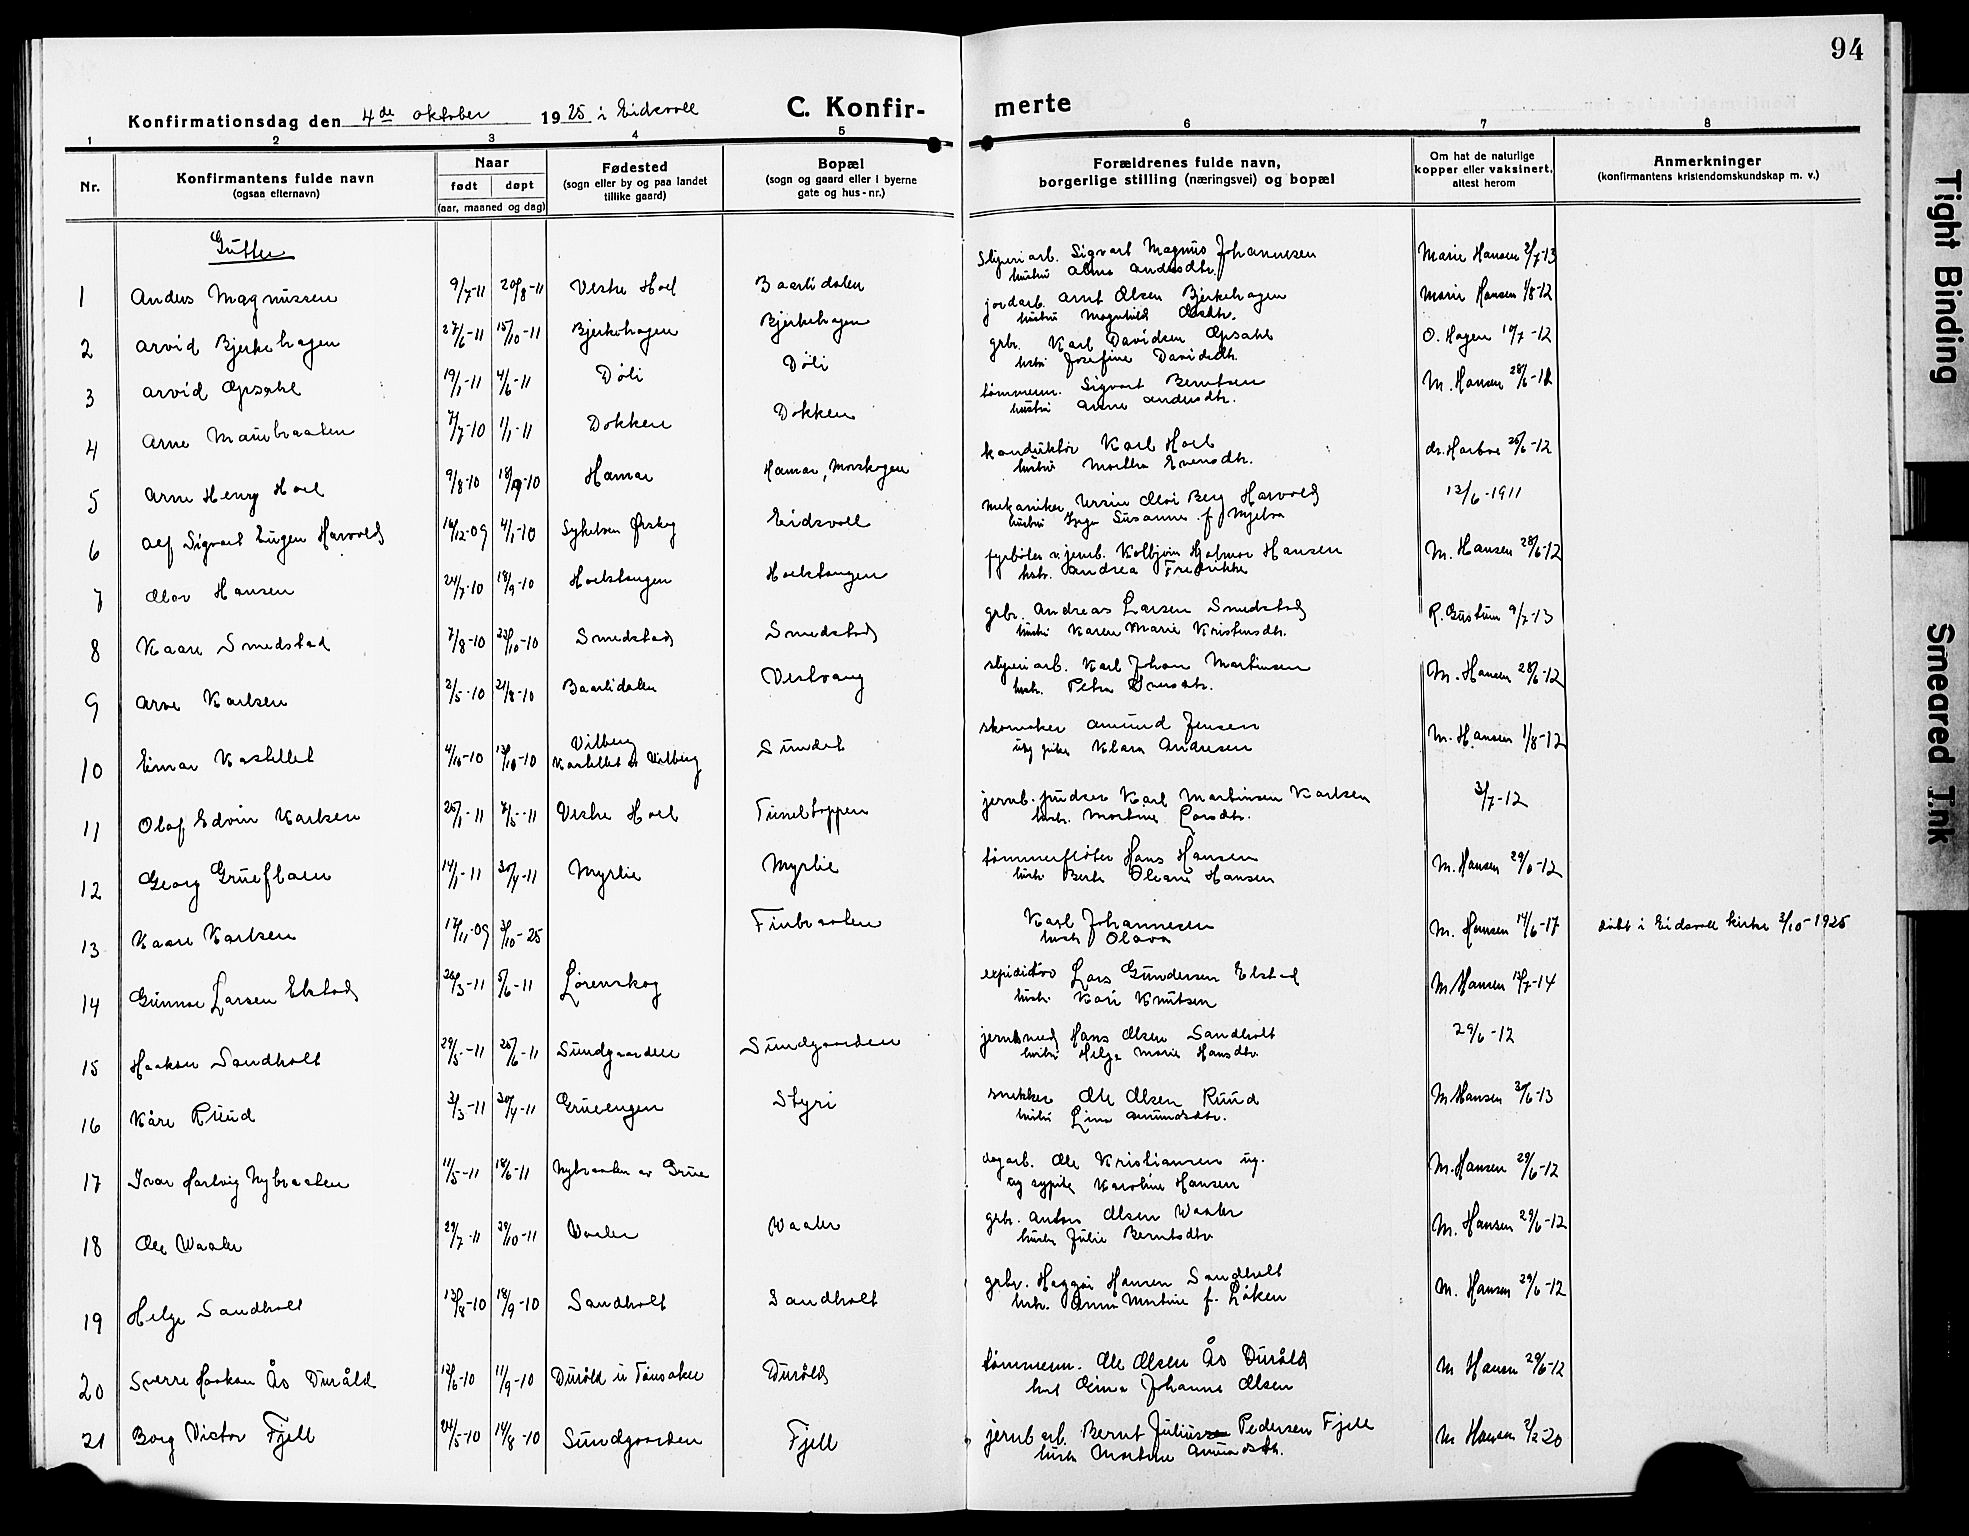 94
Konfirmationsdag den 4de oktober 1925 i Eidsvoll
C. Konfirmerte
1 2 3 4 5 6 7 8
Nr.
Konfirmantens fulde navn
(ogsaa efternavn)
Naar
født døpt
(aar, maaned og dag)
Fødested
(sogn eller by og paa landet
tillike gaard)
Bopæl
(sogn og gaard eller i byerne
gate og hus-nr.)
Forældrenes fulde navn,
borgerlige stilling (næringsvei) og bopæl
Om hat de naturlige
kopper eller vaksinert,
attest herom
Anmerkninger
(konfirmantens kristendomskundskap m. v.)
Gutter
1 Anders Magnussen 9/7-11 20/8-11 Vestre Hoel Baarlidalen Sigvart Magnus Johannesen Marie Hansen 2/7-13
hustru Alma Andersdtr.
2 Arvid Bjerkehagen 27/6-11 15/10-11 Bjerkehagen Bjerkehagen jordarb. Arnt Olsen Bjerkehagen Marie Hansen 1/8-12
hustru Magnhild Olsdtr.
3 Arvid Opsahl 19/1-11 4/6-11 Døli Døli grbr. Karl Davidsen Opsahl O. Hagen 10/7-12
hustru Josefine Davidsdtr.
4 Arne 7/7-10 1/1-11 Dokken Dokken tømmerm. Sigvart Berntsen M. Hansen 28/6-12
hustru Anne Andersdtr.
5 Arne Henry Hoel 9/8-10 18/9-10 Hamar Hamar, Morskogen konduktør Karl Hoel dr. Harboe 25/6-12
hustru Martha Evensdtr.
6 Alf Sigvart Eugen Harvold 16/12-09 4/1-10 Eidsvoll mekaniker Berg Harvold 13/6-1911
hustru Susanne f. Mjelva
7 Olav Hansen 24/7-10 18/9-10 Hoelstangen Hoelstangen fyrbøter v. jernb. Kolbjørn Hjalmar Hansen M. Hansen 28/6-12
hstr. Andrea Fredrikke
8 Kaare Smedstad 7/8-10 23/10-10 Smedstad Smedstad grbr. Andreas Larsen Smedstad R. Gustum 9/7-13
hustru Karen Marie Kristensdtr.
9 Arve Karlsen 2/5-10 21/8-10 Baarlidalen Vestvang Karl Johan Martinsen M. Hansen 28/6-12
hustr. Petra
10 Einar Kastellet 4/10-10 Vilberg Sundet skomaker Amund Jensen M. Hansen 1/8-12
Kastellet Vilberg Klara Andresen
11 Olaf Edvin Karlsen 25/1-11 7/5-11 Vestre Hoel Tuneltoppen Karl Martinsen Karlsen 3/7-12
hustr. Martine Larsdtr.
12 Georg 14/1-11 30/4-11 Myrlie Myrlie tømmerfløter Hans Hansen M. Hansen 29/6-12
hustr. Berte Oleane Hansen
13 Kaare Karlsen 17/11-09 3/10-25 Finbraaten Karl Johannesen M. Hansen 14/6-17 døbt i Eidsvoll kirke 3/10-1925
hustr. Olava
14 Gunnar Larsen Elstad 26/3-11 5/6-11 Lørenskog Lars Gundersen Elstad M. Hansen
hustr. Kari Knutsen
15 Haakon Sandholt 29/5-11 25/6-11 Sundgaarden Sundgaarden Hans Olsen Sandholt 29/6-12
hustru Helga Marie Hansdtr.
16 Kåre Ruud 3/3-11 30/4-11 Gruevengen Styri snekker Ole Olsen Ruud M. Hansen
hustru Lina Amundsdtr.
17 Ivar Hartvig Nybraaten 11/5-11 18/6-11 Nybraaten av Grue dagarb. Ole Kristiansen ug. M. Hansen 29/6-12
og sypike Karoline Hansen
18 Ole Waaler 29/7-11 29/10-11 Vaaler Waaler grbr. Anton Olsen Waaler M. Hansen 29/6-12
hustru Julie Berntsdtr
19 Helge Sandholt 13/8-10 18/9-10 Sandholt Sandholt grbr. Haggai Hansen Sandholt M. Hansen 29/6-12
hustr. Anna Martine f. Løken
20 Sverre Haakon Ås Duråld 12/6-10 11/9-10 Duråld u Tønsaker Duråld tømmerm. Ole Olsen Ås Duråld M Hansen 29/6-12
Johanne Olsen
21 Borg Victor Fjell 24/5-10 14/8-10 Sundgaarden Fjell jernb arb. Bernt Julius Pedersen Fjell M Hansen 2/2-20
hustr Martine Amundsdtr.
Tight Binding
Smeared Ink